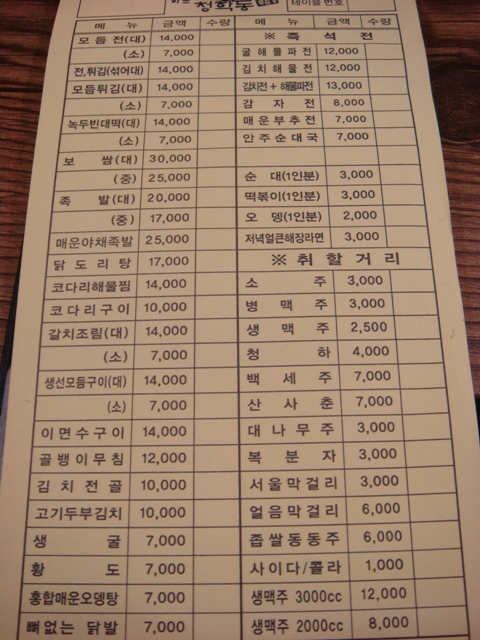 청학동 테이블 번호
메 뉴 금액 수량 메 뉴 금액 수량
모듬전(대) 14,000 ※ 즉 석 전
(소) 7,000 굴해물파전 12,000
전,튀김(섞어대) 14,000 김치해물전 12,000
모듬튀김(대) 14,000 김치전+해물파전 13,000
(소) 7,000 감 자 전 8,000
녹두빈대떡(대) 14,000 매운부추전 7,000
(소) 7,000 안주순대국 7,000
보 쌈(대) 30,000
(중) 25,000 순 대(1인분) 3,000
족 발(대) 20,000 떡볶이(1인분) 3,000
(중) 17,000 오 뎅(1인분) 2,000
매운야채족발 25,000 저녁얼큰해장라면 3,000
닭도리탕 17,000 ※ 취할거리
코다리해물찜 14,000 소 주 3,000
코다리구이 10,000 병 맥 주 3,000
갈치조림(대) 14,000 생 맥 주 2,500
(소) 7,000 청 하 4,000
생선모듬구이(대) 14,000 백 세 주 7,000
(소) 7,000 산 사 춘 7,000
이면수구이 14,000 대나무주 3,000
골뱅이무침 12,000 복 분 자 3,000
김치전골 10,000 서울막걸리 3,000
고기두부김치 10,000 얼음막걸리 6,000
생 굴 7,000 좁쌀동동주 6,000
황 도 7,000 사이다/콜라 1,000
홍합매운오뎅탕 7,000 생맥주 3000cc 12,000
뼈없는 닭발 7,000 생맥주 2000cc 8,000